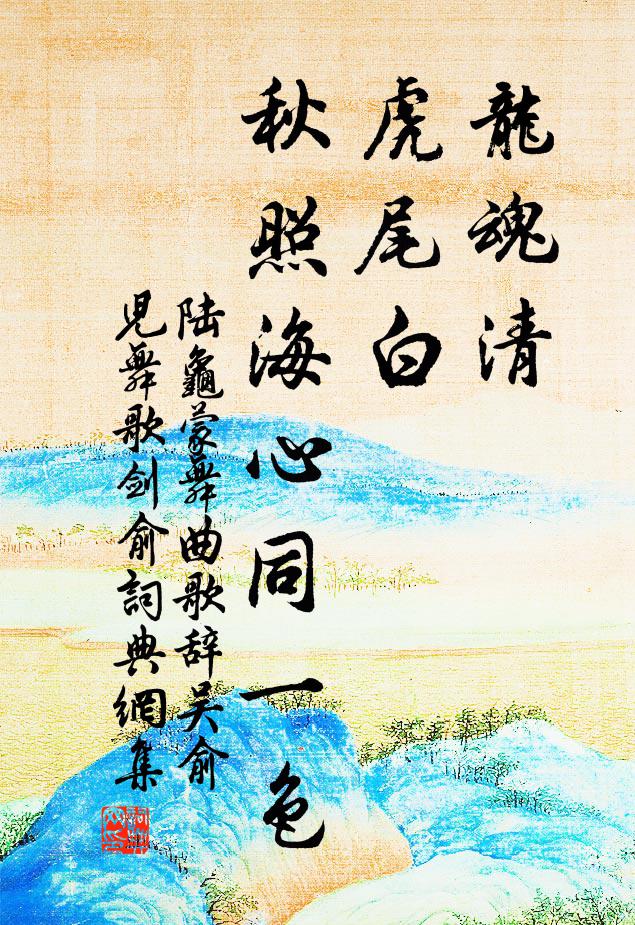 龍魂清
虎尾白
秋照海心同一色
陆龜蒙舞曲歌辞吴俞
兒舞歌劍俞詞典網集